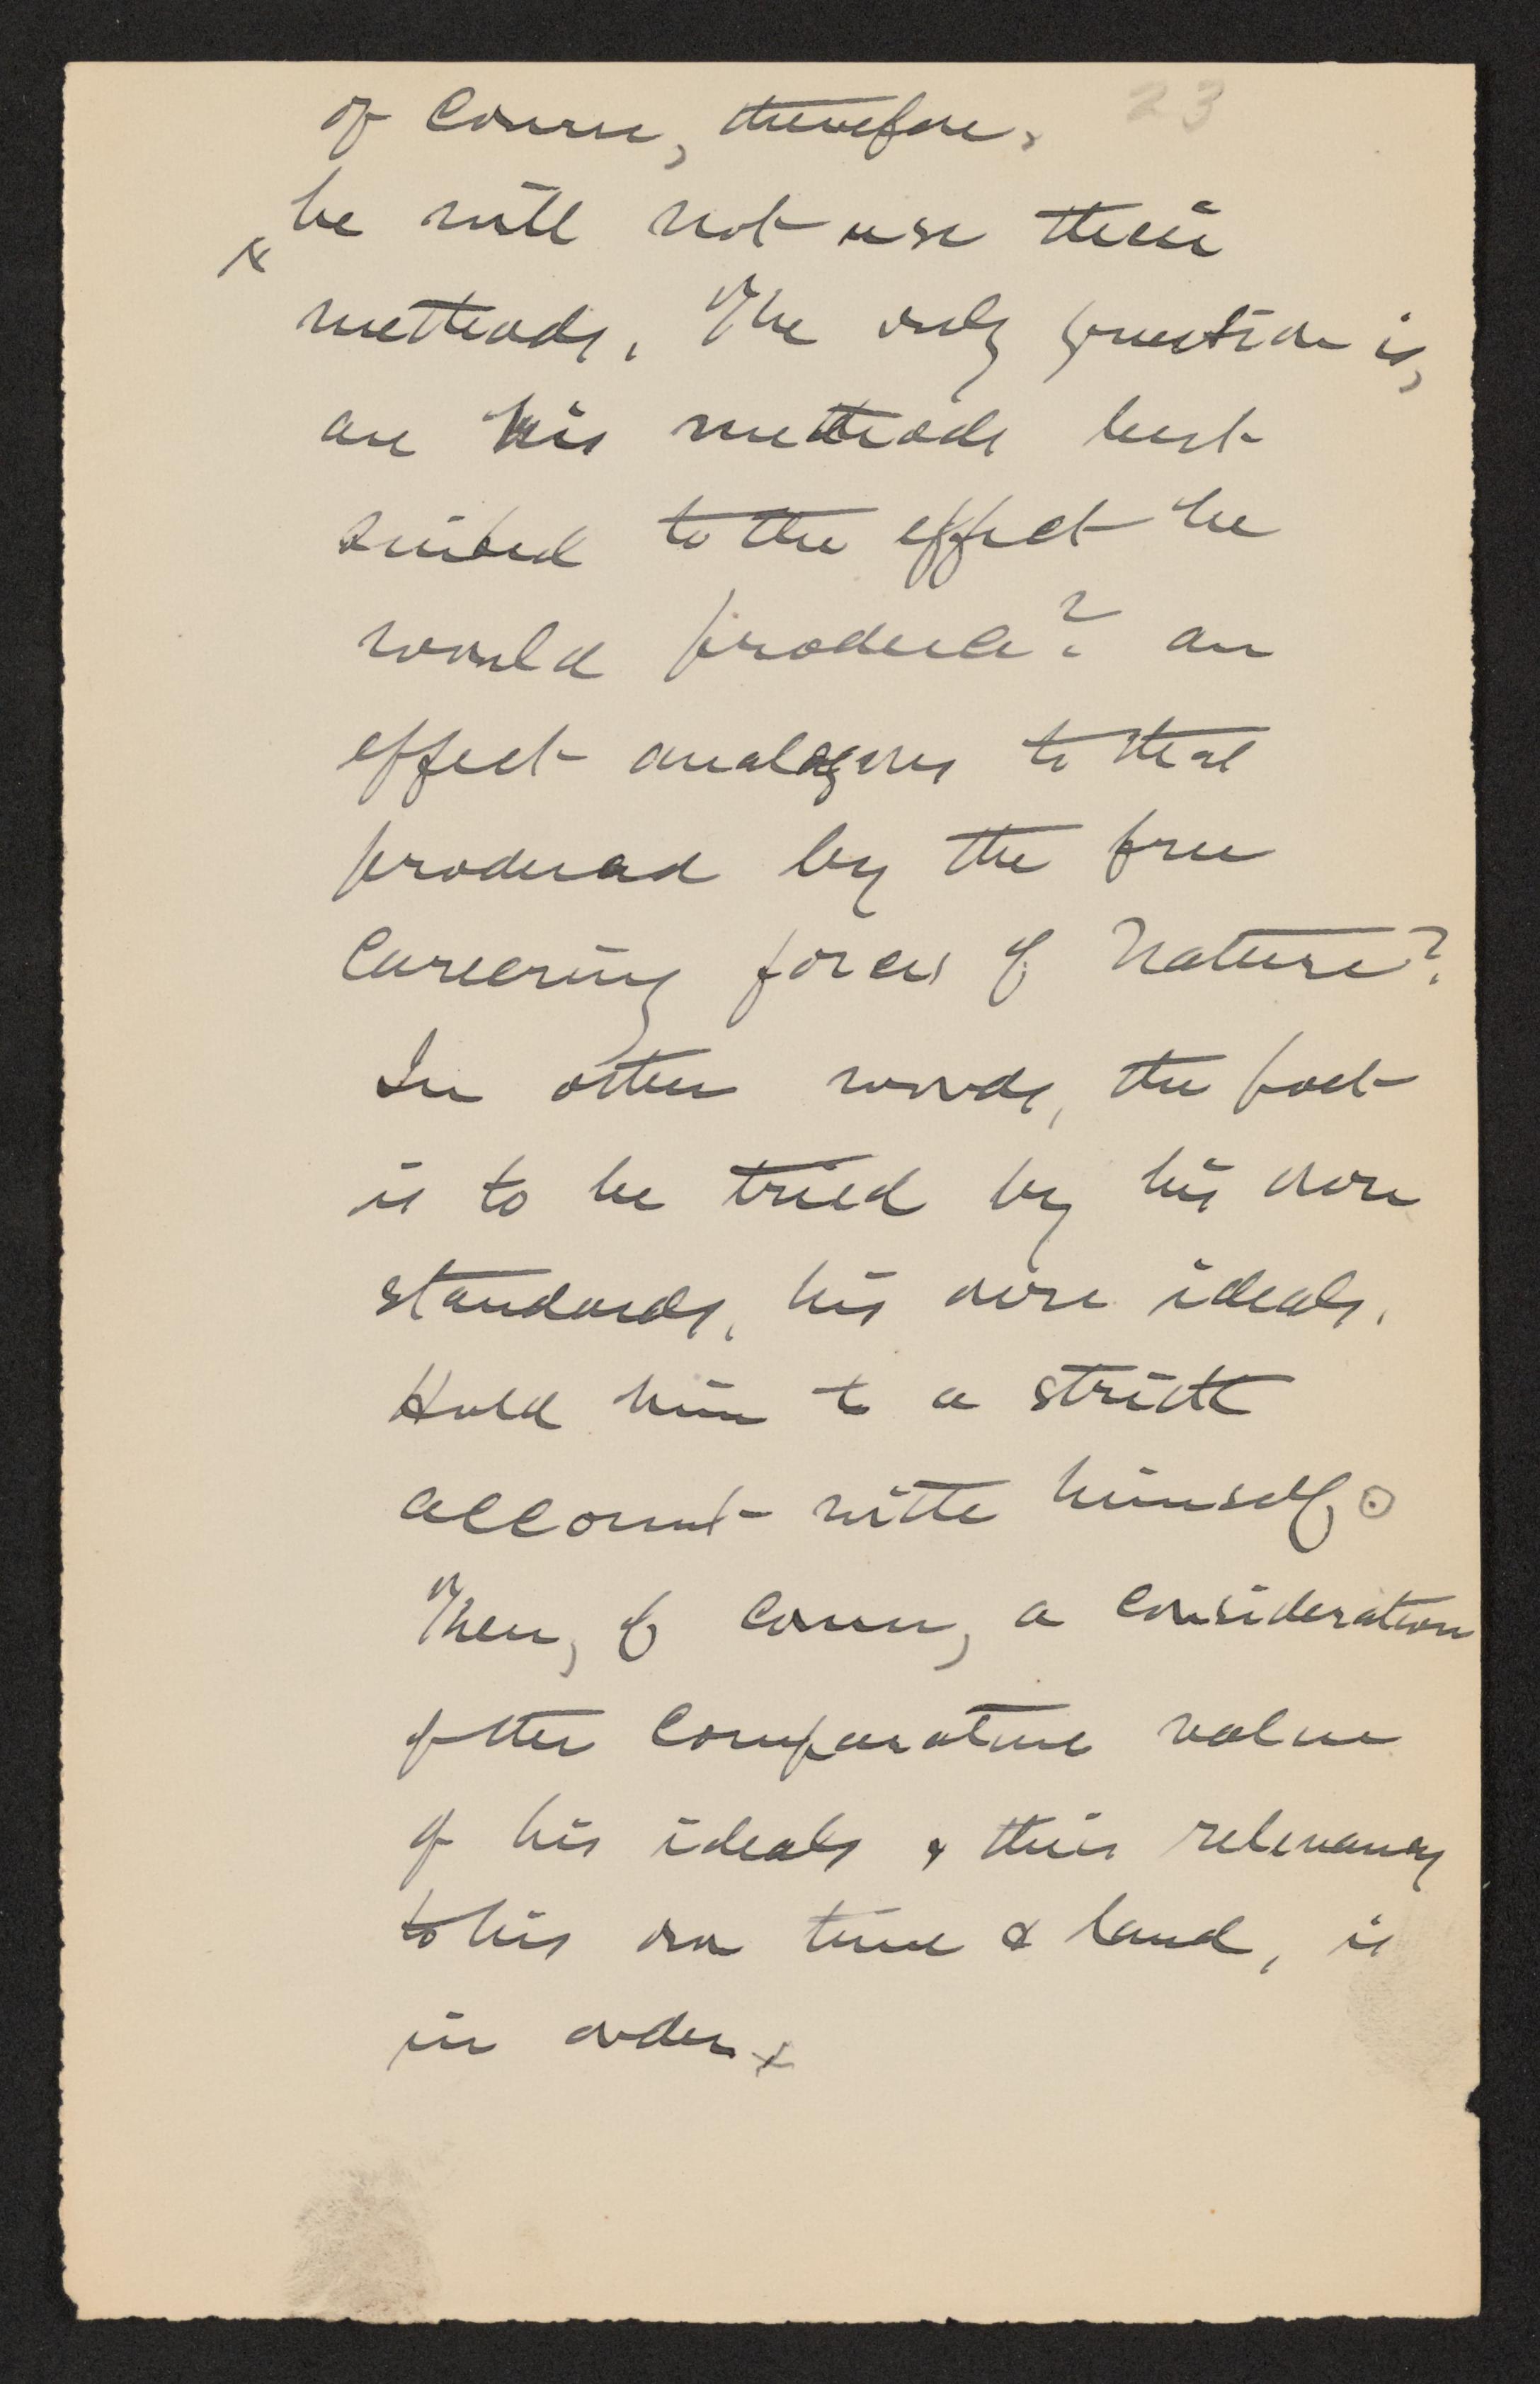 23
of course, therefore,
x he will not use their
methods. The only question is,
are his methods best
suited to the effect he
would produce? an
effect analogous to that
produced by the free
careering forces of Nature?
In other words, the poet
is to be tried by his own
standards, his own ideals.
Hold him to a strict
account with himself.
Then, of course, a consideration
of the comparative value
of his ideals & their relevancy
to his own time & land, is
in order x